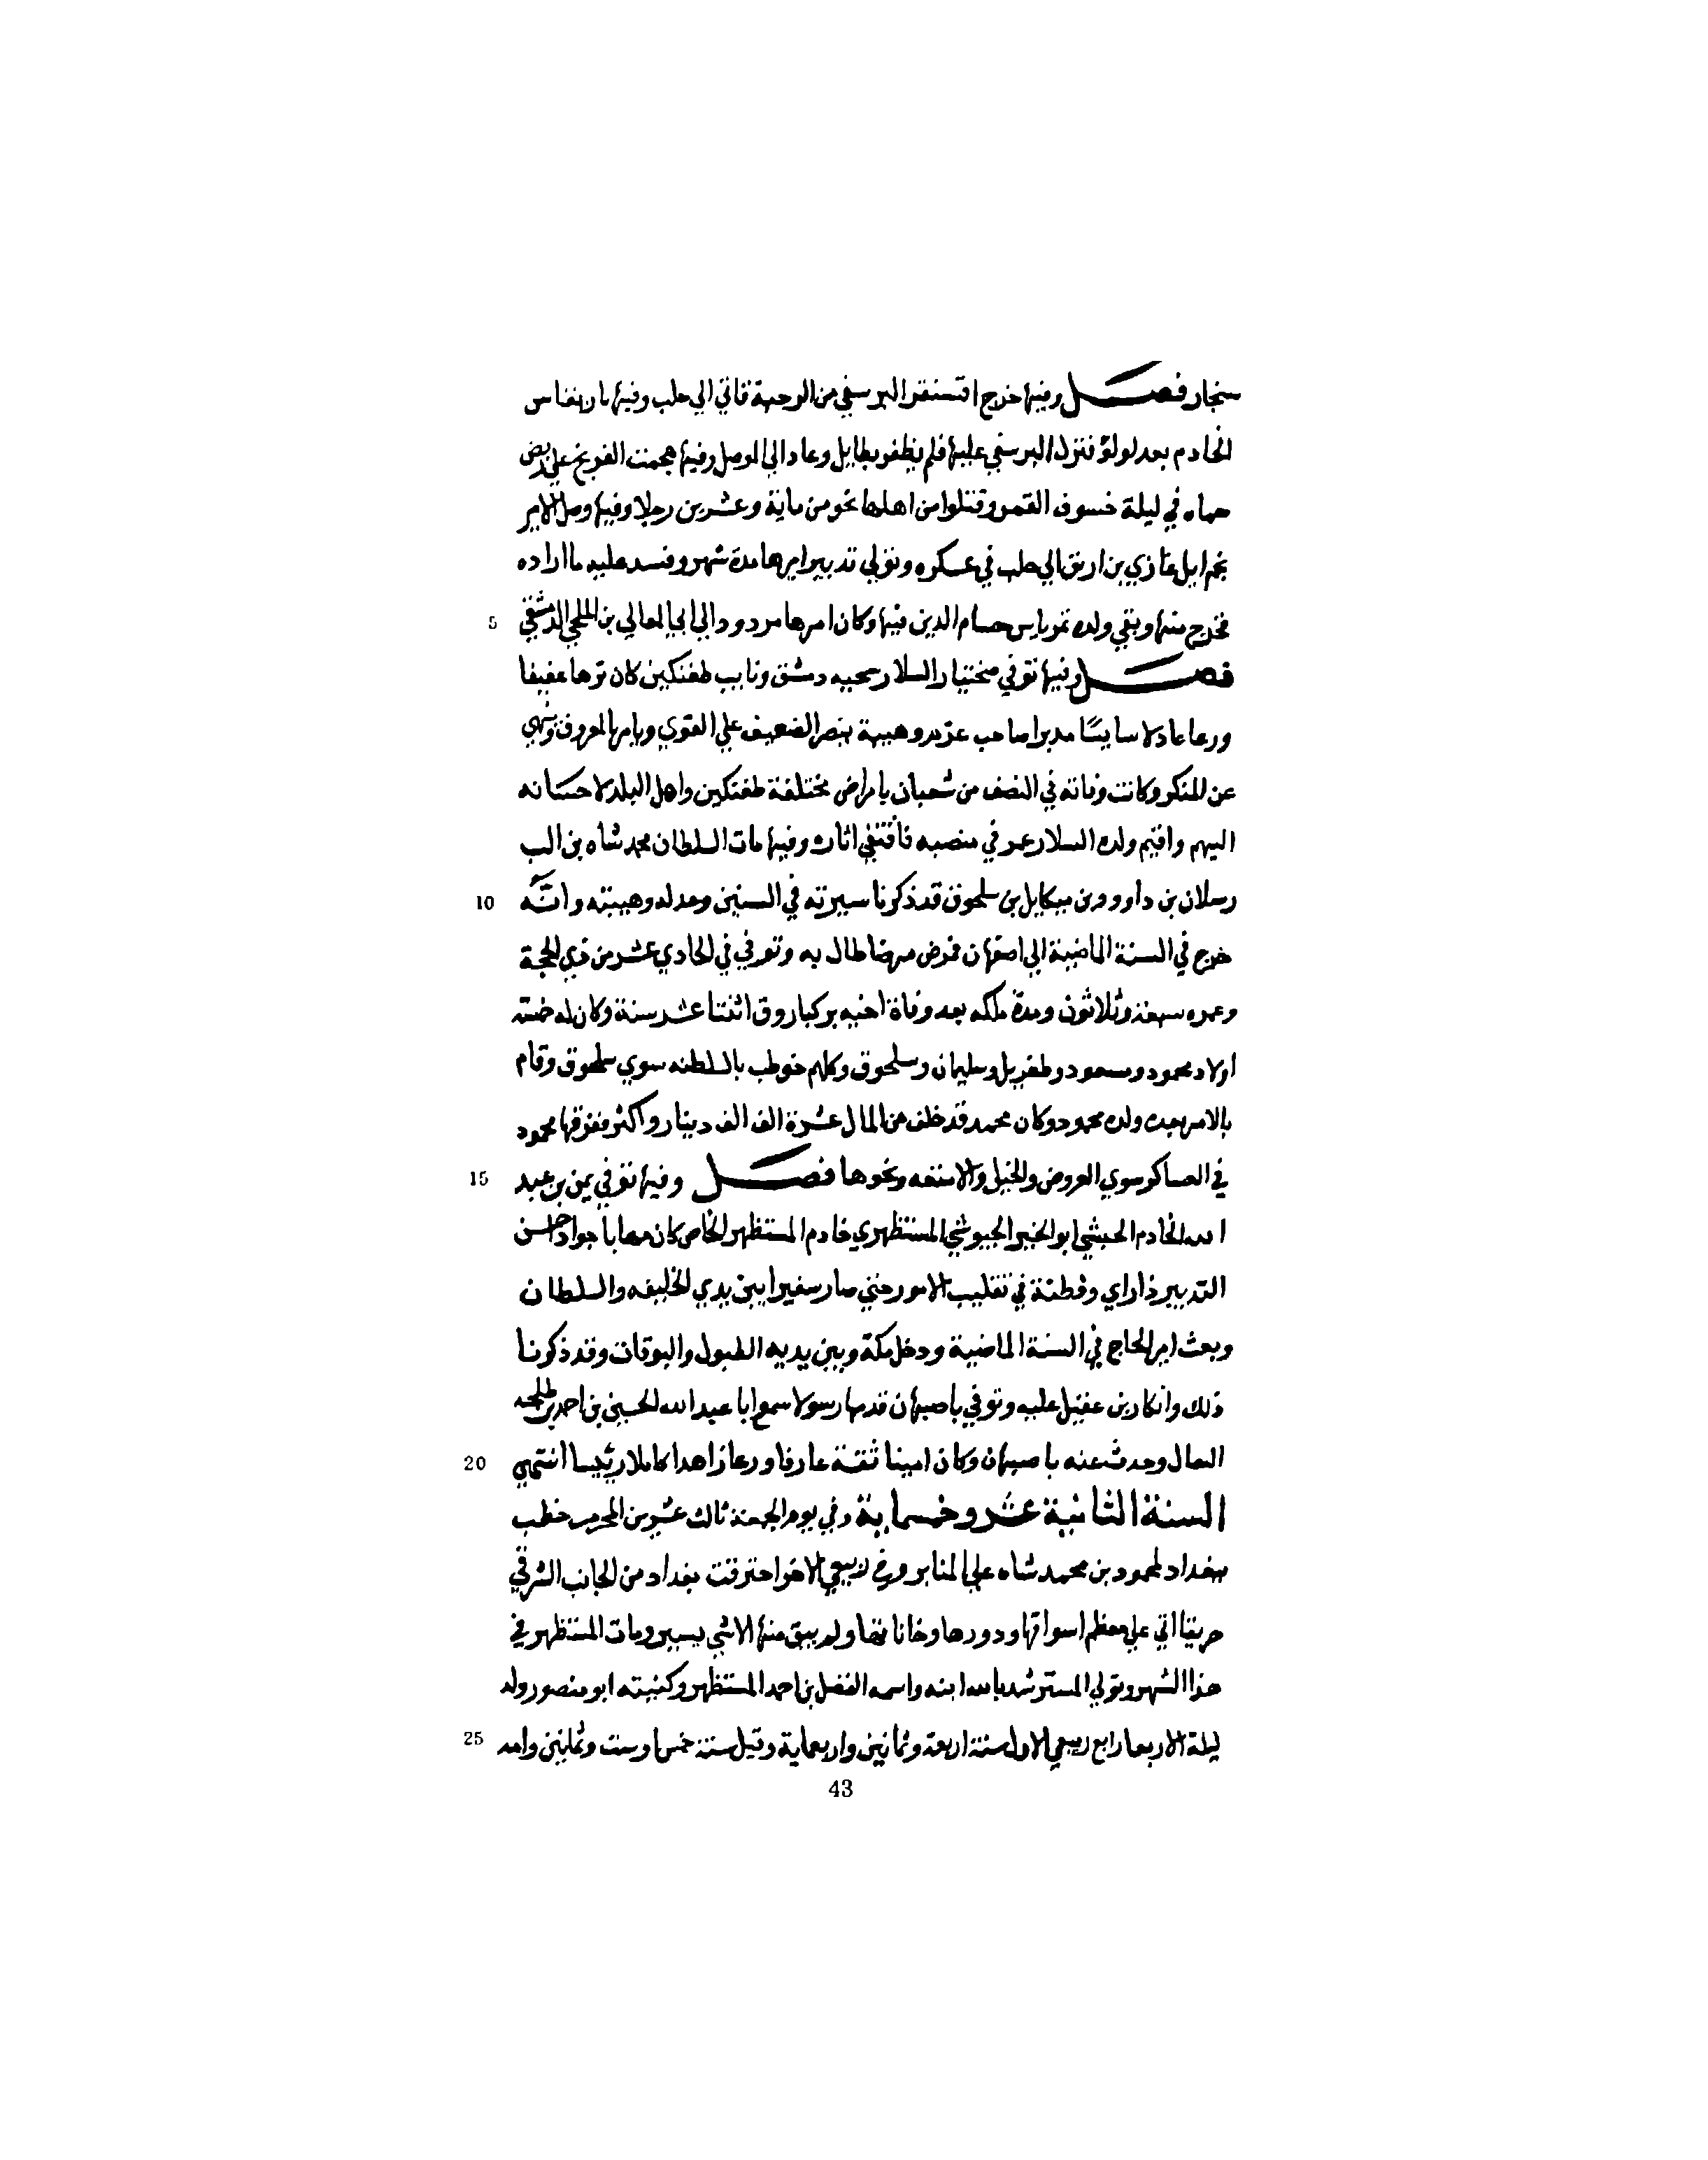 سنجار فصل وفيها خرج اقسنقر البرسقي من الرحبة فاتي الي حلب وفيها يارنقاس
الخادم بعد لولو فنزل البرسقي عليها فلم يظفر بطايل وعاد الي الموصل وفيها هجمت الفرنج علي ربض
حماه في ليلة خسوف القمر وقتلوا من اهلها نحو من ماية وعشرين رجلا وفيها وصل الامير
نجم ايل غازي بن ارتق الي حلب في عسكره وتولي تدبير امرها مدة شهر وفسد عليه ما اراده
5 فخرج منها وبقي ولده تمرتاس حسام الدين فيها وكان امرها مردود الي ابي المعالي بن الملحي الدمشقي
فصل وفيها توفي بختيار السلار شحنه دمشق ونايب طغتكين كان نزها عفيفا
ورعا عادلا سايسًا مدبرا صاحب عزيمه وهيبة ينصر الضعيف علي القوي ويامر بالمعروف وينهي
عن المنكر وكانت وفاته في النصف من شعبان بامراض مختلفة طغتكين واهل البلد لاحسانه
اليهم واقيم ولده السلار عمر في منصبه فاقتفي اثاره وفيها مات السلطان محمد شاه بن الب
10 رسلان بن داوود بن ميكايل بن سلحوق قد ذكرنا سيرته في السنين وعدله وهيبته وانّه
خرج في السنة الماضية الي اصفهان فمرض مرضا طال به وتوفي في الحادي عشر من ذي الحجة
وعمره سبعة وثلاثون ومدة ملكه بعد وفاة اخيه بركياروق اثنتا عشر سنة وكان له خمسة
اولاد محمود ومسعود وطغريل وسليمان وسلحوق وكلهم خوطب بالسلطنه سوي سلحوق وقام
بالامر بعده ولده محمود وكان محمد قد خلف من المال عشرة الف الف دينار واكثر ففرقها محمود
15 في العساكر سوي العروض والخيل والامتعه ونحوها فصل وفيها توفي يمن بن عبد
الله الخادم الحبشي ابو الخير الجيوشي المستظهري خادم المستظهر الخاص كان مهابا جوادا حسن
التدبير ذا راي وفطنة في تقليب الامور حتي صار سفيرا بين يدي الخليفه والسلطان
وبعث امير الحاج في السنة الماضية ودخل مكة وبين يديه الطبول والبوقات وقد ذكرنا
ذلك وانكار بن عقيل عليه وتوفي باصبهان قدمها رسولا سمع ابا عبد الله الحسين بن احمد بن طلحه
20 النعال وحدث عنه باصبهان وكان امينا ثقة عارفا ورعا زاهدا كاملا رئيسا انتهي
السنة الثانية عشر وخمسماية وفي يوم الجمعة ثالث عشر من المحرم خطب
ببغداد لمحمود بن محمد شاه علي المنابر وفي ربيع الاخر احترقت بغداد من الجانب الشرقي
حريقا اتي علي معظم اسواقها ودورها وخاناتها ولم يبق منها الا شي يسير ومات المستظهر في
هذا الشهر وتولي المسترشد بالله ابنه واسمه الفضل بن احمد المستظهر وكنيته ابو منصور ولد
25 ليلة الاربعا رابع ربيع الاول سنة اربعة وثمانين واربعماية وقيل سنة خمس او ست وثمانين وامه
43